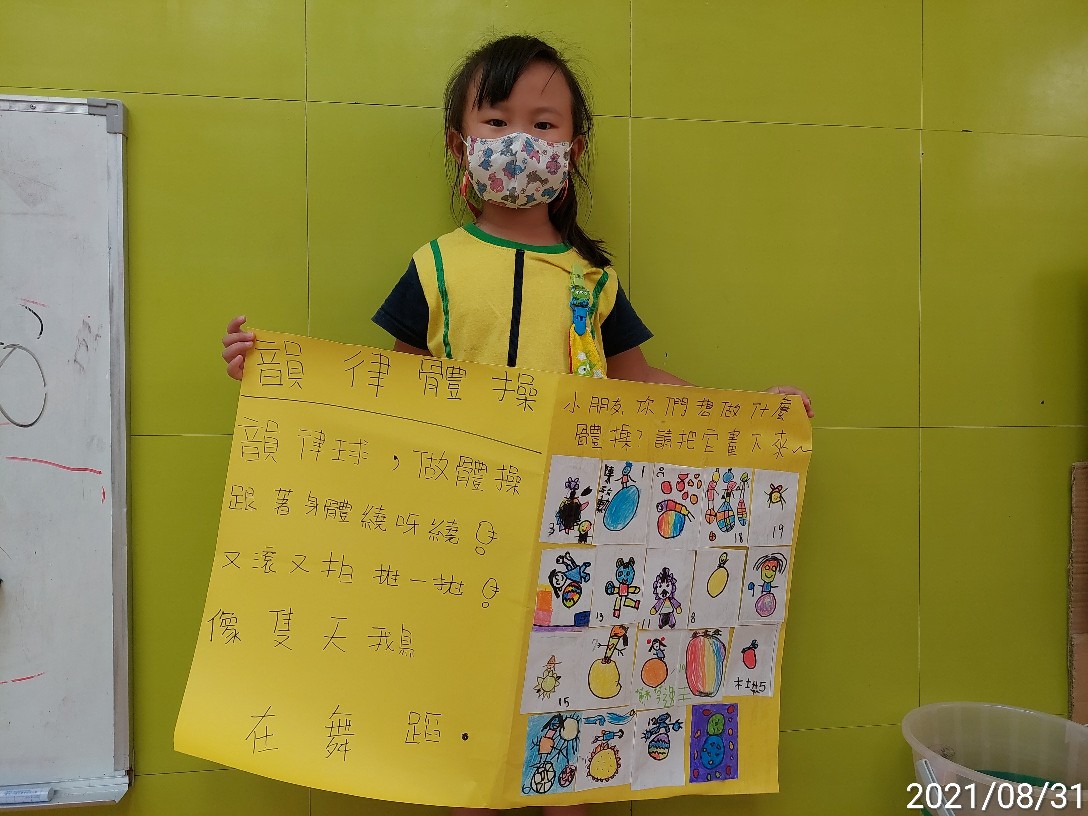 韻律體操
韻律球，做體操
跟著身體繞呀繞！
又滾又拍 拋一拋！
像隻天鵝
在舞蹈。
小朋友你們想做什麼
體操？請把它畫下來～
3
1
8
18
19
13
11
18
9
15
5
2021/08/31